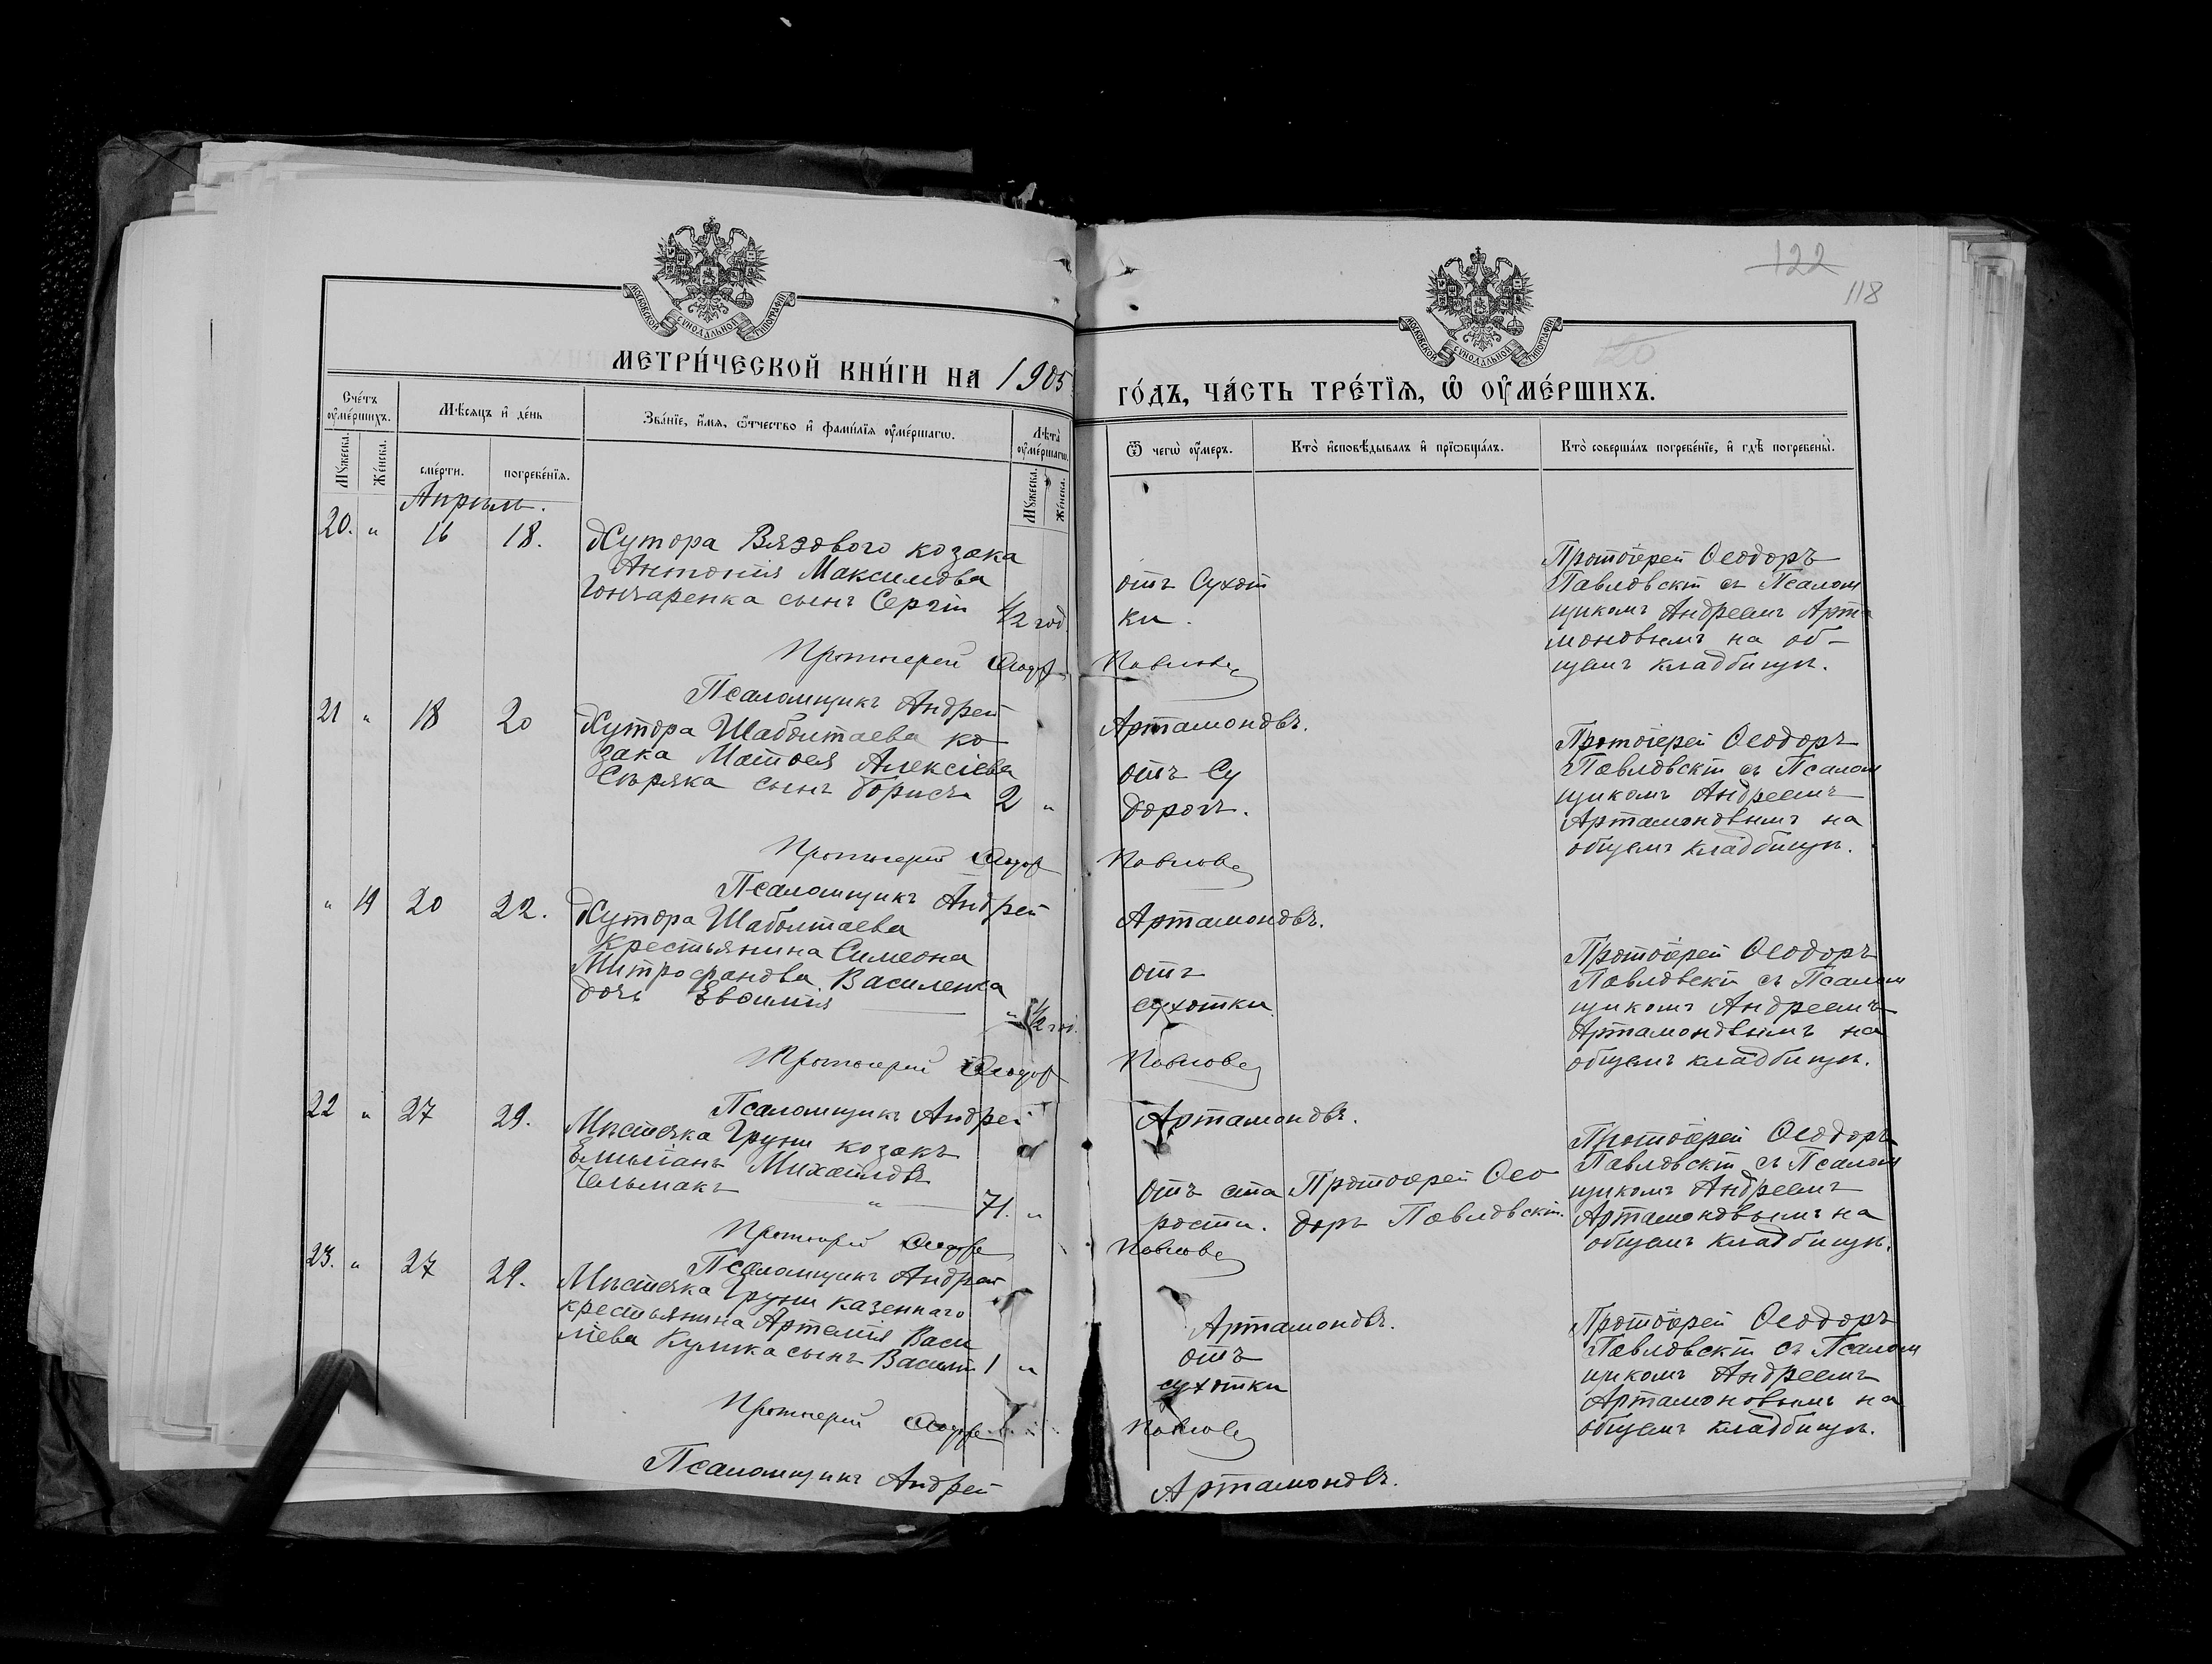 122
118
МОСКОВСКОЙ СѴНОДАЛЬНОЙ ТИПОГРАФІИ
МОСКОВСКОЙ СѴНОДАЛЬНОЙ ТИПОГРАФІИ
МЕТРИ́ЧЕСКОЙ КНИ́ГИ НА 1905
ГО́ДЪ, ЧА́СТЬ ТРЕ́ТЇѦ, Ѡ҆ ОУ҆МЕ́РШИХЪ.
Сче́тъ оу҆ме́ршихъ.
Мꙋ́жеска.
Же́нска.
Мѣ́сѧцъ и҆ де́нь
сме́рти.
погребе́нїѧ.
Зва́нїе, и҆́мѧ, ѿтчество и҆ фами́лїѧ оу҆ме́ршагѡ.
Лѣта̀ оу҆ме́ршагѡ.
Мꙋ́жеска.
Же́нска.
Ѿ чегѡ̀ оу҆́меръ.
Кто̀ и҆сповѣ́дывалъ и҆ прїѡбща́лъ.
Кто̀ соверша́лъ погребе́нїе, и҆ гдѣ̀ погребены̀.
Апрѣль.
20. " 16 18.
Хутора Вязового козака
Антонія Максимова
Гончаренка сынъ Сергій 1/2 год.
отъ Сухот
ки.
Протоіерей Ѳеодоръ
Павловскій съ Псалом
щикомъ Андреемъ Арта
моновымъ на об-
щемъ кладбищѣ.
Протоіерей Ѳеодоръ Павловс
Псаломщикъ Андрей Артамоновъ.
21 " 18 20
Хутора Шаболтаева ко
зака Матѳея Алексіева
Сѣряка сынъ Борисъ 2 "
отъ Су
дорогъ.
Протоіерей Ѳеодоръ
Павловскій съ Псалом
щикомъ Андреемъ
Артамоновымъ на
общемъ кладбищѣ.
Протоіерей Ѳеодоръ Павловс
Псаломщикъ Андрей Артамоновъ.
" 19 20 22.
Хутора Шаболтаева
Крестьянина Симеона
Митрофанова Василенка
дочь Евѳимія " 1/2 год.
отъ
сухотки
Протоіерей Ѳеодоръ
Павловскій съ Псалом
щикомъ Андреемъ
Артамоновымъ на
общемъ кладбищѣ.
Протоіерей Ѳеодоръ Павловс
Псаломщикъ Андрей Артамоновъ.
22 " 27 29.
Мѣстечка Груни козакъ
Емиліанъ Михайловъ
Чельмакъ " 71. "
отъ ста
рости.
Протоіерей Ѳео
доръ Павловскій.
Протоіерей Ѳеодоръ
Павловскій съ Псалом
щикомъ Андреемъ
Артамоновымъ на
общемъ кладбищѣ.
Протоіерей Ѳеодоръ Павловс
Псаломщикъ Андрей Артамоновъ.
23. " 27 29.
Мѣстечка Груни казеннаго
крестьянина Артемія Васи
ліева Кулика сынъ Василій 1 "
отъ
сухотки
Протоіерей Ѳеодоръ
Павловскій съ Псалом
щикомъ Андреемъ
Артамоновымъ на
общемъ кладбищѣ.
Протоіерей Ѳеодоръ Павловс
Псаломщикъ Андрей Артамоновъ.